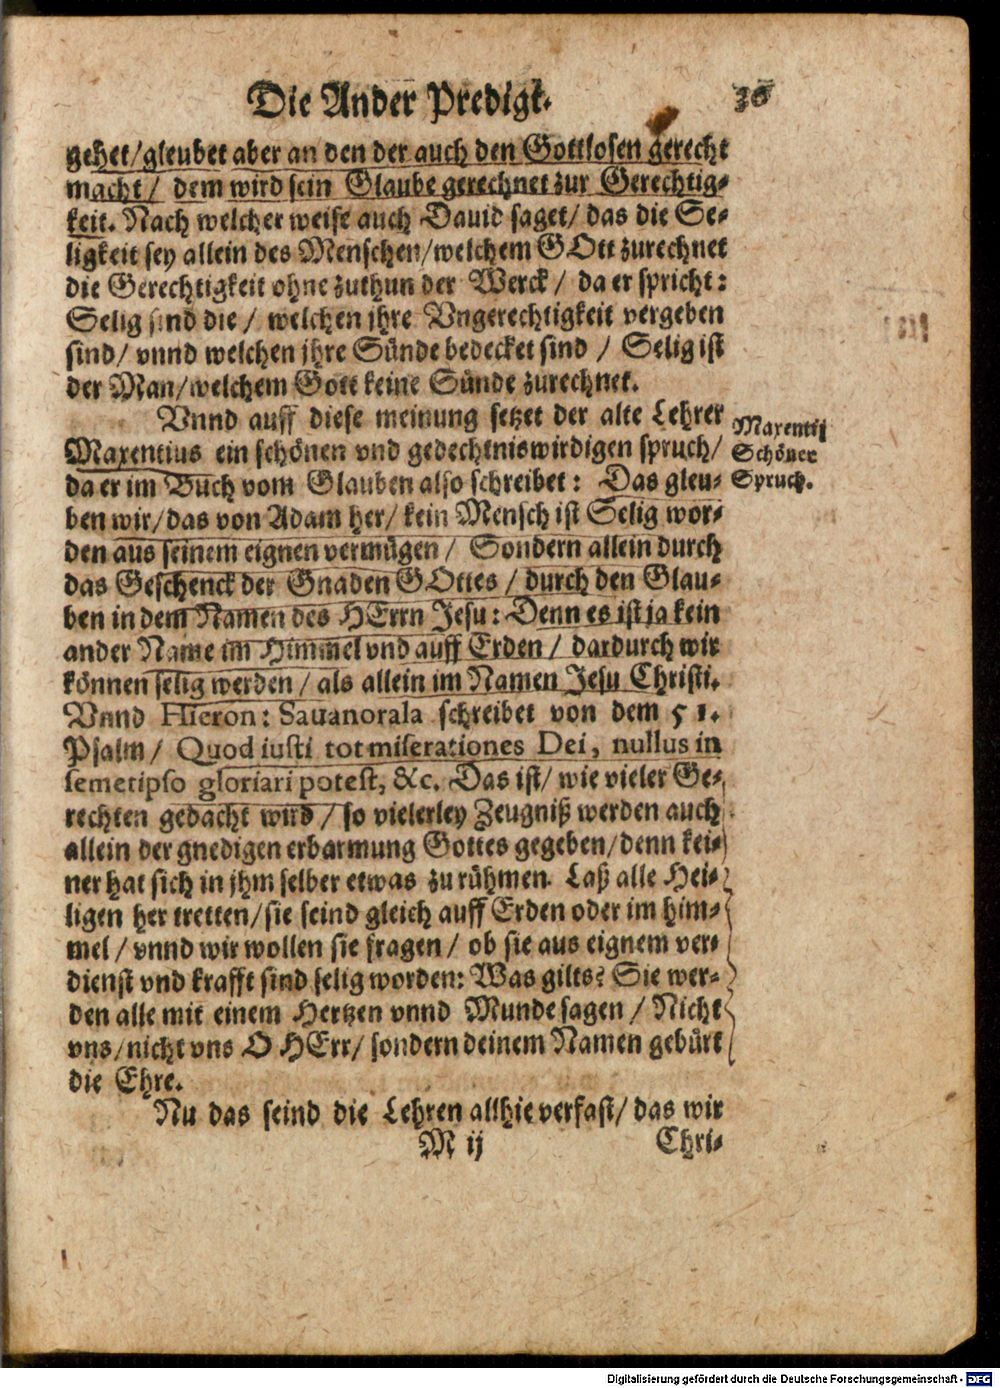 Die Ander Predigt. 36
gehet/gleubet aber an den der auch den Gottlosen gerecht
macht/ dem wird sein Glaube gerechnet zur Gerechtig-
keit. Nach welcher weise auch Dauid saget/ das die Se-
ligkeit sey allein des Menschen/welchem GOtt zurechnet
die Gerechtigkeit ohne zuthun der Werck/ da er spricht:
Selig sind die/ welchen jhre Vngerechtigkeit vergeben
sind/ vnnd welchen jhre Sünde bedecket sind / Selig ist
der Man/welchem Gott keine Sünde zurechnet.
Vnnd auff diese meinung setzet der alte Lehrer
Maxentius ein schönen vnd gedechtniswirdigen spruch/
da er im Buch vom Glauben also schreibet: Das gleu-
ben wir/das von Adam her/ kein Mensch ist Selig wor-
den aus seinem eignen vermügen/ Sondern allein durch
das Geschenck der Gnaden GOttes / durch den Glau-
ben in dem Namen des HErrn Jesu: Denn es ist ja kein
ander Name im Himmel vnd auff Erden / dardurch wir
können selig werden / als allein im Namen Jesu Christi.
Vnnd Hieron: Sauanorala schreibet von dem 51.
Psalm/ Quod iusti tot miserationes Dei, nullus in
semetipso gloriari potest, &c. Das ist/ wie vieler Ge-
rechten gedacht wird / so vielerley Zeugniß werden auch
allein der gnedigen erbarmung Gottes gegeben/denn kei-
ner hat sich in jhm selber etwas zu rühmen. Laß alle Hei-
ligen her tretten/sie seind gleich auff Erden oder im him-
mel / vnnd wir wollen sie fragen / ob sie aus eignem ver-
dienst vnd krafft sind selig worden: Was gilts? Sie wer-
den alle mit einem Hertzen vnnd Munde sagen / Nicht
vns/nicht vns O HErr/ sondern deinem Namen gebürt
die Ehre.
Nu das seind die Lehren allhie verfast/ das wir
M ij Chri-
Maxentij
Schöner
Spruch.
Digitalisierung gefördert durch die Deutsche Forschungsgemeinschaft - DFG